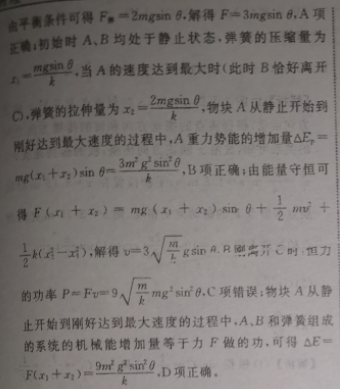 由平衡条件可得 F弹=2mgsin θ,解得 F=3mgsin θ,A 项
正确;初始时 A、B 均处于静止状态,弹簧的压缩量为
x₁=mgsin θ/k,当 A 的速度达到最大时(此时 B 恰好离开
C),弹簧的拉伸量为 x₂=2mgsin θ/k,物块 A 从静止开始到
刚好达到最大速度的过程中,A 重力势能的增加量ΔEₚ=
mg(x₁+x₂)sin θ=3m²g²sin²θ/k,B 项正确;由能量守恒可
得 F(x₁+x₂)=mg(x₁+x₂)sin θ+½mv²+
½k(x₂²-x₁²),解得 v=3√(m/k) gsin θ,B 刚离开 C 时 力
的功率 P=Fv=9√(m/k) mg²sin²θ,C 项错误;物块 A 从静
止开始到刚好达到最大速度的过程中,A、B 和弹簧组成
的系统的机械能增加量等于力 F 做的功,可得 ΔE=
F(x₁+x₂)=9m²g²sin²θ/k,D 项正确。